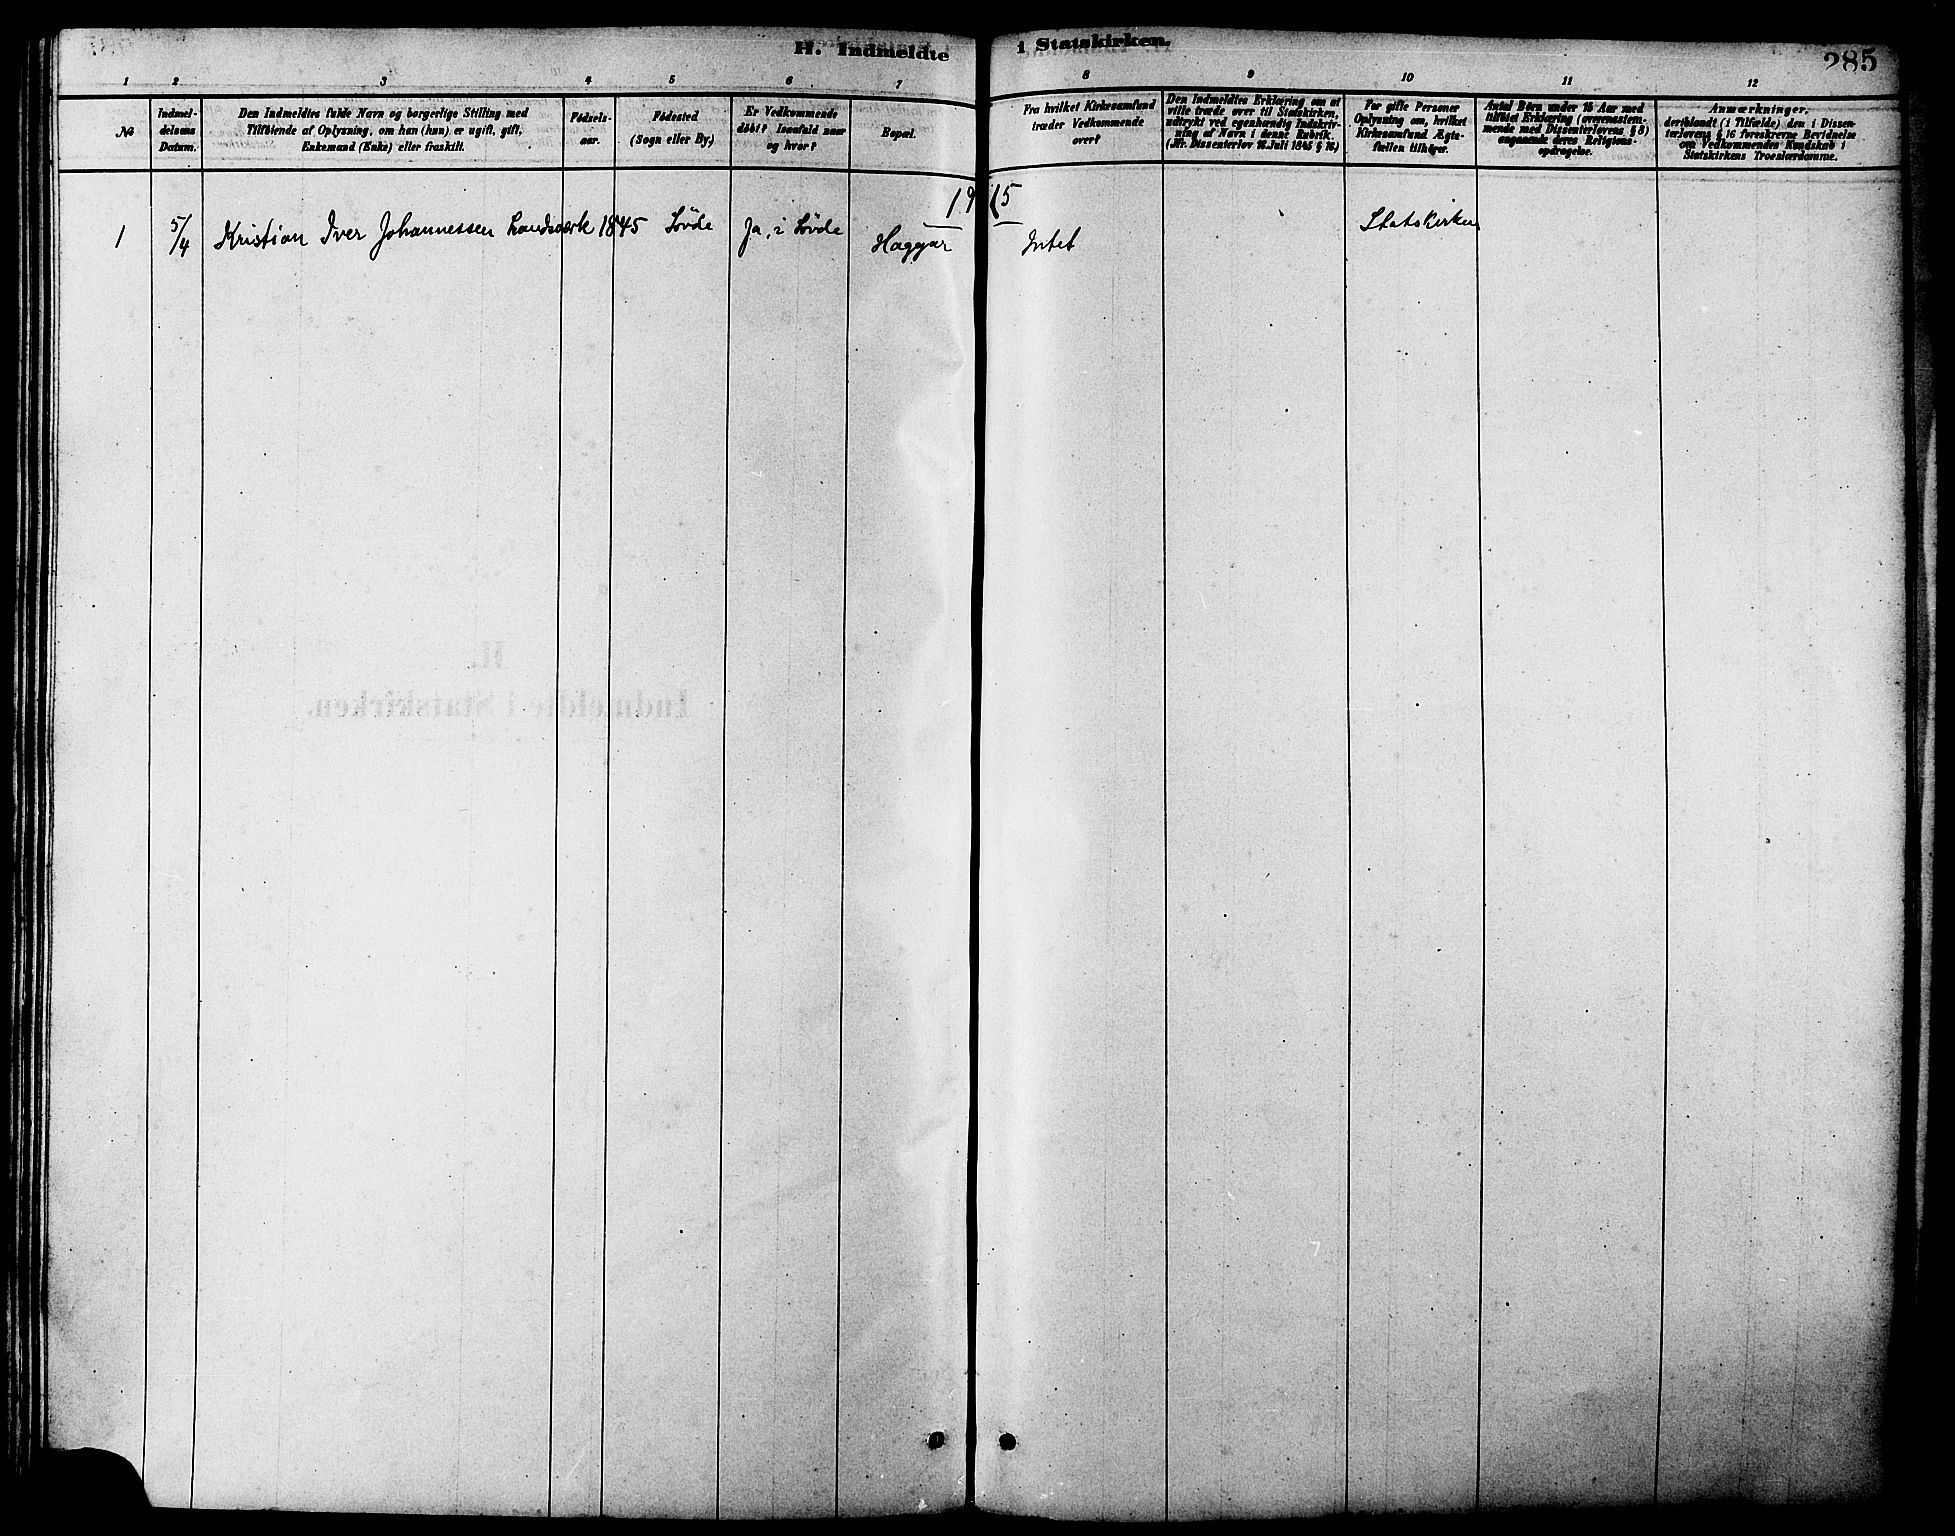 H. Indmeldte i Statskirken.
285
1 2 3 4 5 6 7 8 9 10 11 12
No
Indmel-
delsens
Datum.
Den Indmeldtes fulde Navn og borgerlige Stilling med
Tilföiende af Oplysning, om han (hun) er ugift, gift,
Enkemand (Enke) eller fraskilt.
Födsels-
aar.
Födested
(Sogn eller By.)
Er Vedkommende
döbt? Isaafald naar
og hvor?
Bopæl.
Fra hvilket Kirkesamfund
træder Vedkommende
over?
Den Indmeldtes Erklæring om at
ville træde over til Statskirken,
udtrykt ved egenhændig Indskriv-
ning af Navn i denne Rubrik.
(Jfr. Dissenterlov 16. Juli 1845 § 16.)
For gifte Personer
Oplysning om, hvilket
Kirkesamfund Ægte-
fællen tilhører.
Antal Börn under 15 Aar med
tilföiet Erklæring (overensstem-
mende med Dissenterlovens § 8)
angaaende deres Religions-
opdragelse.
Anmærkninger,
deriblandt (i Tilfælde) den i Dissen-
terlovens § 16 foreskrevne Bevidnelse
om Vedkommendes Kundskab i
Statskirkens Troeslærdomme.
1915
1 5/4 Kristian Iver Johannessen Landsværk 1845 Lövde Ja, i Lövde Haggar Intet Statskirken
H.
Indmeldte i Statskirken.